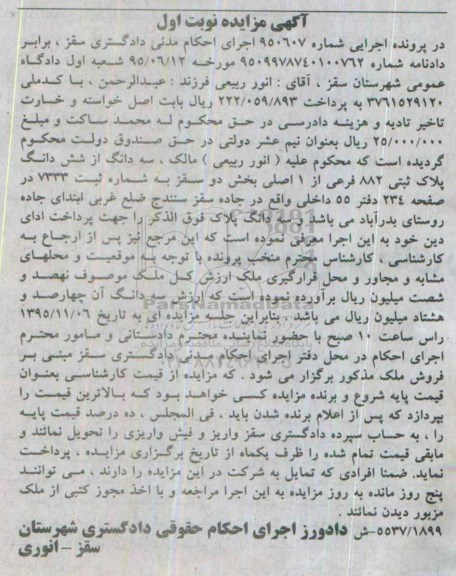 آگهی مزایده نوبت اول
در پرونده اجرایی شماره ۹۵۰۶۰۷ اجرای احکام مدنی دادگستری سقز ، برابر
دادنامه شماره ۹۵۰۹۹۷۸۷۴۰۱۰۰۷۶۲ مورخه ۹۵/۰۶/۱۲ شعبه اول دادگاه
عمومی شهرستان سقز ، آقای : انور ربیعی فرزند : عبدالرحمن ، با کدملی
۳۷۶۱۵۲۹۱۲۰ به پرداخت ۲۲۲/۰۵۹/۸۹۳ ریال بابت اصل خواسته و خسارت
تاخیر تادیه و هزینه دادرسی در حق محکوم له محمد ساکت و مبلغ
۲۵/۰۰۰/۰۰۰ ریال بعنوان نیم عشر دولتی در حق صندوق دولت محکوم
گردیده است که محکوم علیه ( انور ربیعی ) مالک ، سه دانگ از شش دانگ
پلاک ثبتی ۸۸۲ فرعی از ۱ اصلی بخش دو سقز به شماره ثبت ۷۳۳۳ در
صفحه ۲۳۴ دفتر ۵۵ داخلی واقع در جاده سقز سنندج ضلع غربی ابتدای جاده
روستای بدرآباد می باشد وسه دانگ پلاک فوق الذکر را جهت پرداخت ادای
دین خود به این اجرا معرفی نموده است که این مرجع نیز پس از ارجاع به
کارشناسی ، کارشناس محترم منخب پرونده با توجه به موقعیت و محلهای
مشابه و مجاور و محل قرارگیری ملک ارزش کل ملک موصوف نهصد و
شصت میلیون ریال برآورده نموده است که ارزش سه دانگ آن چهارصد و
هشتاد میلیون ریال می باشد . بنابراین جلسه مزایده ای به تاریخ ۱۳۹۵/۱۱/۰۶
راس ساعت ۱۰ صبح با حضور نماینده محترم دادستانی و مامور محترم
اجرای احکام در محل دفتر اجرای احکام مدنی دادگستری سقز مبنی بر
فروش ملک مذکور برگزار می شود . که مزایده از قیمت کارشناسی بعنوان
قیمت پایه شروع و برنده مزایده کسی خواهد بود که بالاترین قیمت را
بپردازد که پس از اعلام برنده شدن باید ، فی المجلس ، ده درصد قیمت پایه
را ، به حساب سپرده دادگستری سقز واریز و فیش واریزی را تحویل نمائند و
مابقی قیمت تمام شده را ظرف یکماه از تاریخ برگزاری مزایده ، پرداخت
نماید. ضمنا افرادی که تمایل به شرکت در این مزایده را دارند ، می توانند
پنج روز مانده به روز مزایده به این اجرا مراجعه و با اخذ مجوز کتبی از ملک
مزبور دیدن نمائند .
۵۵۳۷/۱۸۹۹-ش دادورز اجرای احکام حقوقی دادگستری شهرستان
سقز – انوری